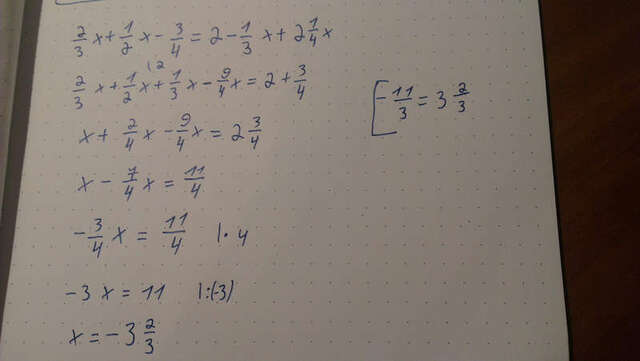 2/3 x + 1/2 x - 3/4 = 2 - 1/3 x + 2 1/4 x
2/3 x + 1/2 x + 1/3 x - 9/4 x = 2 + 3/4
x + 2/4 x - 9/4 x = 2 3/4
x - 7/4 x = 11/4
- 3/4 x = 11/4 |· 4
-3 x = 11 |:(-3)
x = -3 2/3
[ - 11/3 = 3 2/3